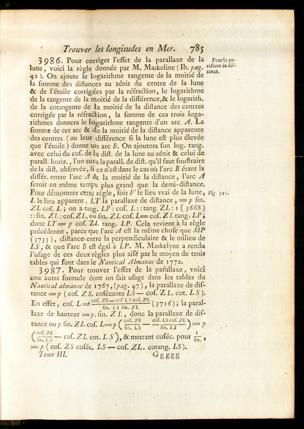 Trouver les longitudes en Mer. 785
3986. Pour corriger l'effet de la parallaxe de la
lune, voici la règle donnée par M. Maskeline (Ib. pag.
42). On ajoute le logarithme tangente de la moitié de
la somme des distances au zénit du centre de la lune
& de l'étoile corrigées par la réfraction, le logarithme
de la tangente de la moitié de la différence, & le logarith.
de la cotangente de la moitié de la distance des centres
corrigée par la réfraction, la somme de ces trois loga-
rithmes donnera le logarithme tangente d'un arc A. La
somme de cet arc & de la moitié de la distance apparente
des centres (ou leur différence si la lune est plus élevée
que l'étoile) donne un arc B. On ajoutera son log. tang.
avec celui du cos. de la dist. de la lune au zénit & celui de
parall. horiz., l'on aura la parall. de dist. qu'il faut soustraire
de la dist. observée, si ce n'est dans le cas où l'arc B étant la
différ. entre l'arc A & la moitié de la distance, l'arc A
seroit en même temps plus grand que la demi-distance.
Pour démontrer cette règle, soit V le lieu vrai de la lune,
L le lieu apparent, LT la parallaxe de distance, = p sin.
ZL cos. L; on a tang. LP : cos. L :: tang. ZL : 1 (3668)
:: sin. ZL : cos. ZL, ou sin. ZL cos. L = cos. ZL tang. LP;
donc LT = p cos. ZL tang. LP. Cela revient à la règle
précédente, parce que l'arc A est la même chose que MP
(3733), distance entre la perpendiculaire & le milieu de
LS, & que l'arc B est égal à LP. M. Maskelyne a rendu
l'usage de ces deux règles plus aisé par le moyen de trois
tables qui sont dans le Nautical Almanac de 1772.
3987. Pour trouver l'effet de la parallaxe, voici
une autre formule dont on fait usage dans les tables du
Nautical almanac de 1767, (pag. 47), la parallaxe de dis-
tance = p (cos. ZS cosécante LS — cos. ZL cot. LS).
En effet, cos. L = (cos. ZS — cos. LS cos. ZL)/(sin. LS sin. ZL) (3716); la paral-
laxe de hauteur = p. sin. ZL, donc la parallaxe de dis-
tance ou p sin. ZL cos. L = p (cos. ZS/sin. LS — cos. LS cos. ZL/sin. LS) = p
(cos. ZS/sin. LS — cos. ZL cot. LS), & mettant coséc. pour 1/sin.,
= p (cos. ZS coséc. LS — cos. ZL cotang. LS).
Tome III. Ggggg
Pour la pa-
rallaxe de dis-
tance.